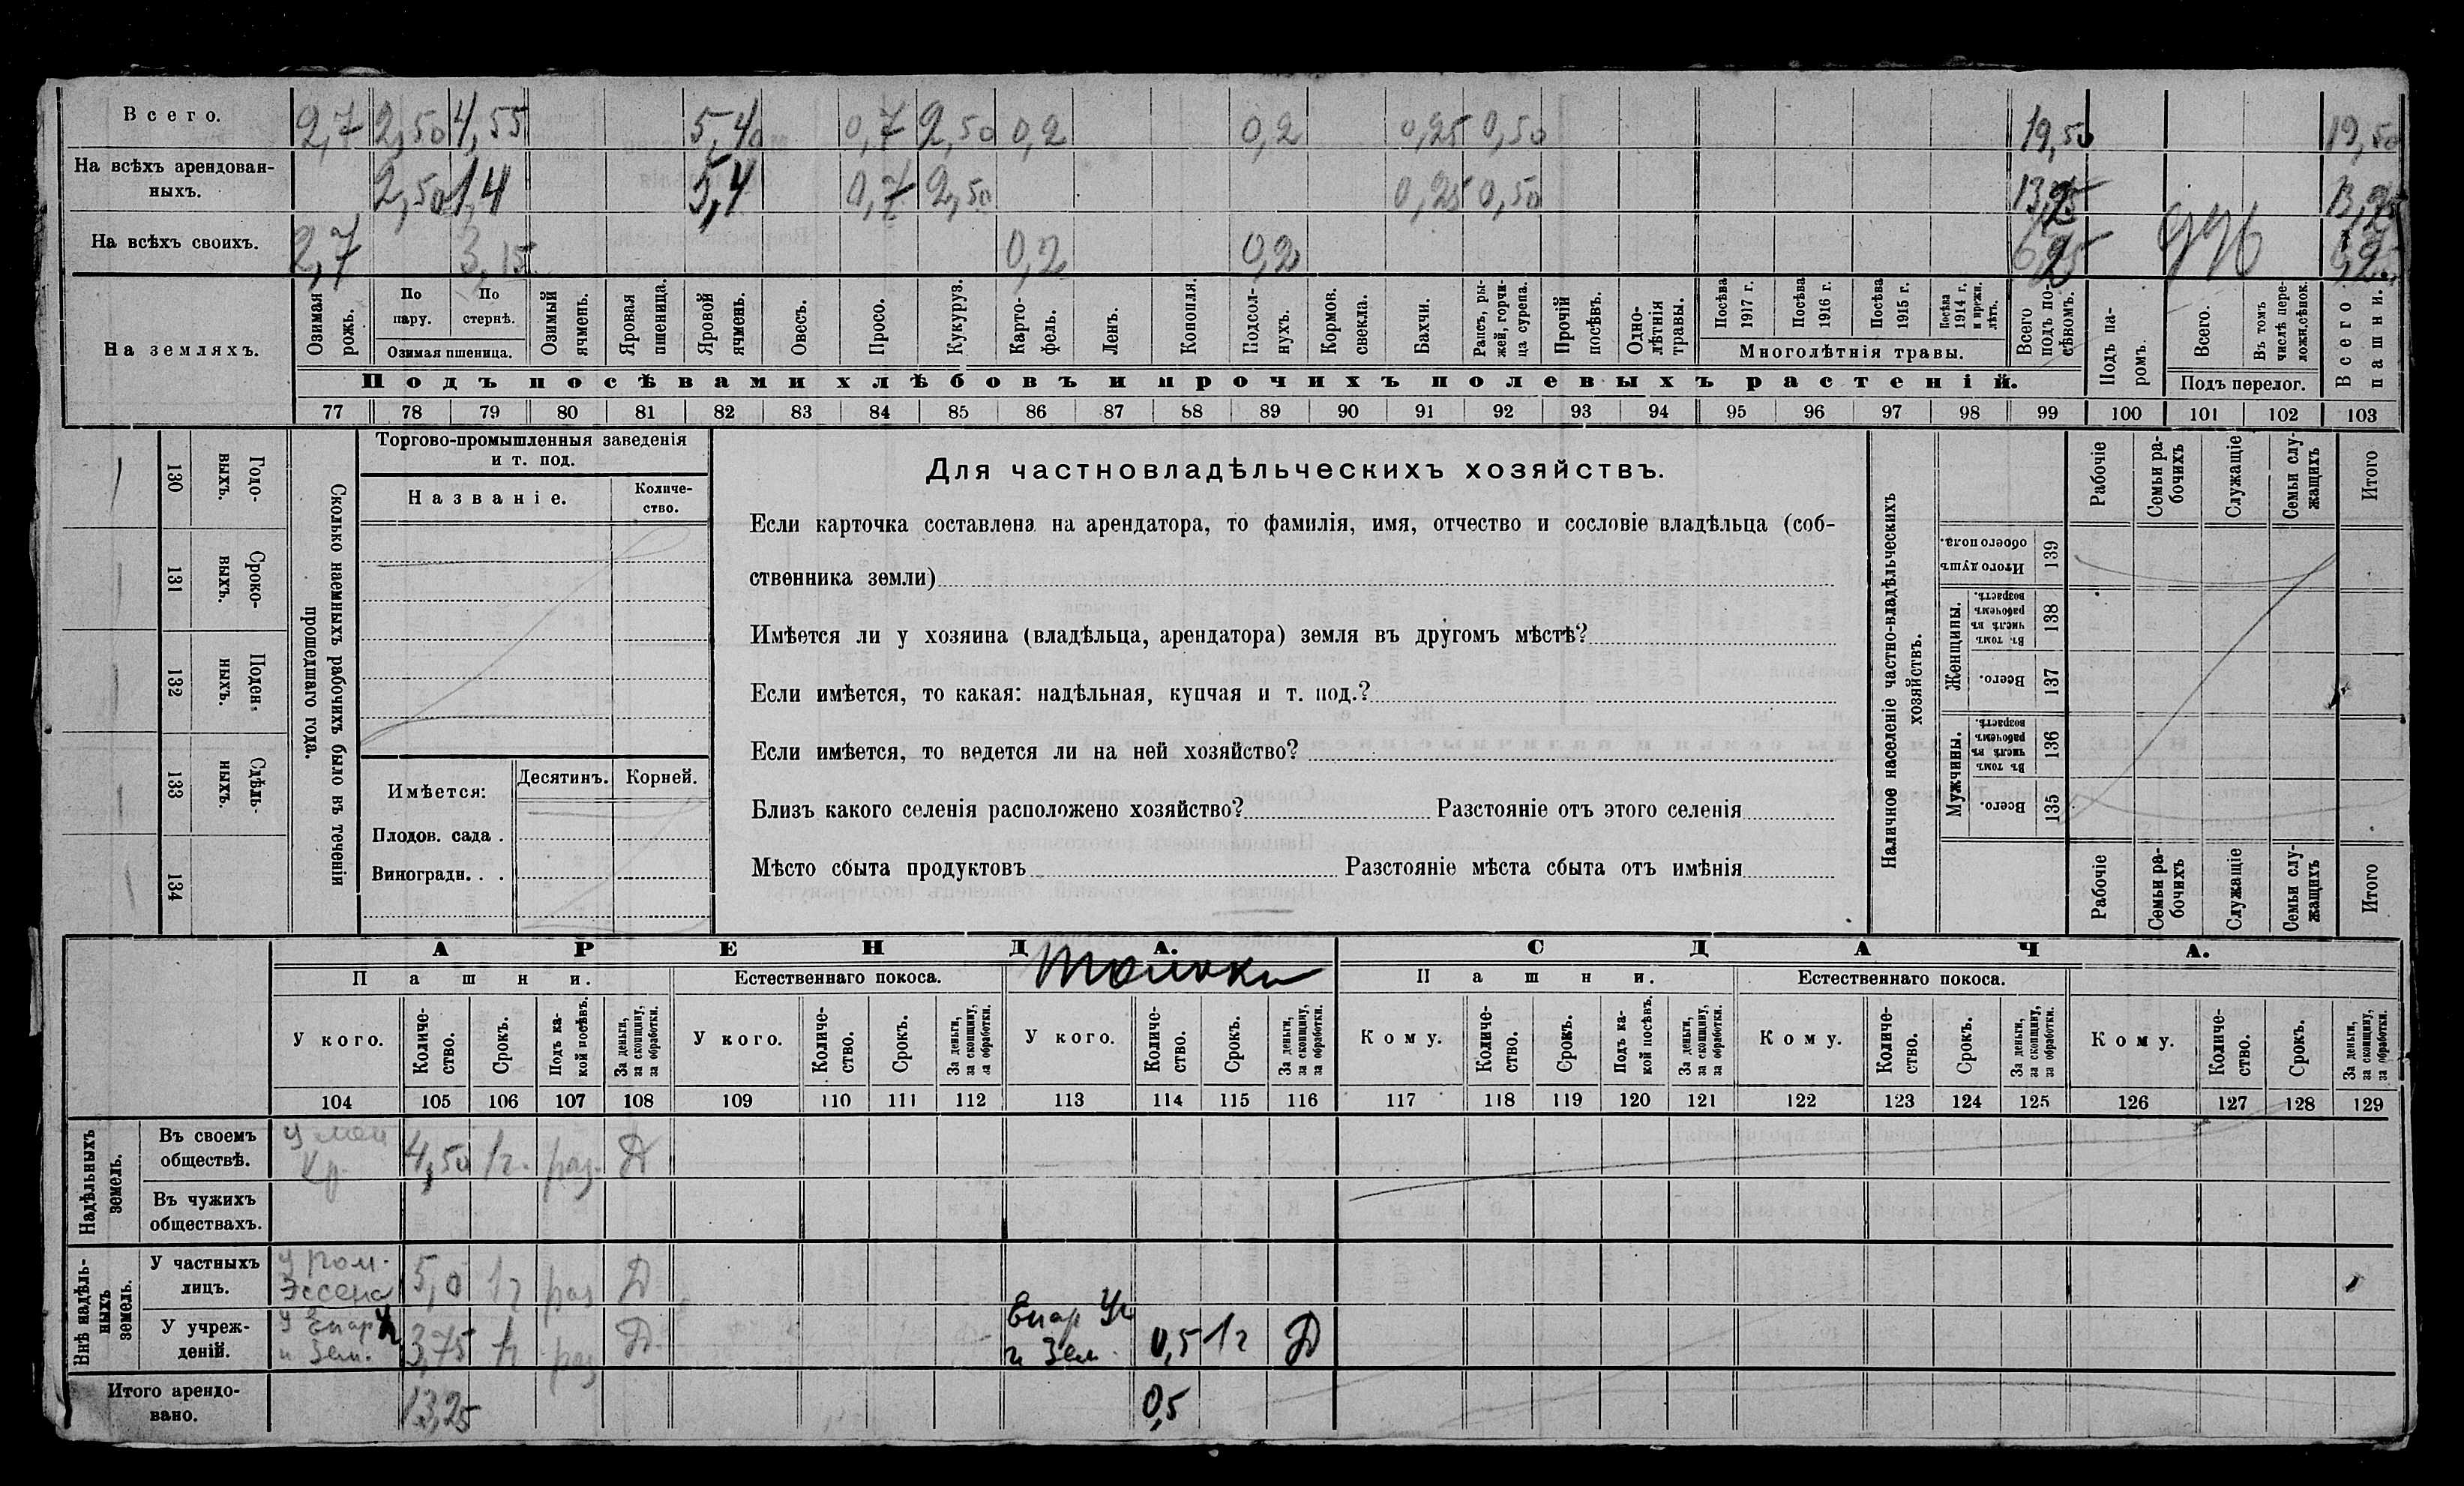 Всего. 2,7 2,50 4,55 5,40 0,7 2,50 0,2 0,2 0,25 0,50 19,50 19,50
На всѣхъ арендован-
ныхъ. 2,50 1,4 5,4 0,7 2,50 0,25 0,50 13,25 13,25
На всѣхъ своихъ. 2,7 3,15 0,2 0,2 6,25 6,25
На земляхъ.
Озимая рожь.
По пару.
По стернѣ.
Озимая пшеница.
Озимый ячмень.
Яровая пшеница.
Яровой ячмень.
Овесъ.
Просо.
Кукуруз.
Карто-
фель.
Ленъ.
Конопля.
Подсол-
нухъ.
Кормов. свекла.
Бахчи.
Рапсъ, ры-
жей, горчи-
ца сурепа.
Прочій посѣвъ.
Одно-
лѣтнія травы.
Посѣва 1917 г.
Посѣва 1916 г.
Посѣва 1915 г.
Посѣва 1914 г. и прежн. лѣтъ.
Многолѣтнія травы.
Всего подъ по-
сѣвомъ.
Подъ па-
ромъ.
Всего.
Въ томъ числѣ пере-
ложн.сѣнок.
Подъ перелог.
Всего пашни.
Подъ посѣвами хлѣбовъ и прочихъ полевыхъ растеній.
77 78 79 80 81 82 83 84 85 86 87 88 89 90 91 92 93 94 95 96 97 98 99 100 101 102 103
Годо-
выхъ. 130
Сроко-
ныхъ. 131
Поден-
ныхъ. 132
Сдѣль-
ныхъ. 133
134
Сколько наемныхъ рабочихъ было въ теченіи
прошедшаго года.
Торгово-промышленныя заведенія
и т. под.
Названіе.
Количе-
ство.
Имѣется: Десятинъ. Корней.
Плодов. сада .
Виноградн. . .
Для частновладѣльческихъ хозяйствъ.
Если карточка составлена на арендатора, то фамилія, имя, отчество и сословіе владѣльца (соб-
ственника земли)
Имѣется ли у хозяина (владѣльца, арендатора) земля въ другомъ мѣстѣ?
Если имѣется, то какая: надѣльная, купчая и т. под.?
Если имѣется, то ведется ли на ней хозяйство?
Близъ какого селенія расположено хозяйство? Разстояніе отъ этого селенія
Мѣсто сбыта продуктовъ Разстояніе мѣста сбыта отъ имѣнія
Наличное населеніе частно-владѣльческихъ
хозяйствъ.
Рабочіе
Семьи ра-
бочихъ
Служащіе
Семьи слу-
жащихъ
Итого
Итого душъ обоего пола. 139
Женщины.
Въ томъ числѣ въ рабочемъ возрастѣ. 138
Всего. 137
Мужчины.
Въ томъ числѣ въ рабочемъ возрастѣ. 136
Всего. 135
Рабочіе
Семьи ра-
бочихъ
Служащіе
Семьи слу-
жащихъ
Итого
АРЕНДА. СДАЧА.
Пашни. Естественнаго покоса. Толоки Пашни. Естественнаго покоса.
У кого.
Количе-
ство.
Срокъ.
Подъ ка-
кой посѣвъ.
За деньги,
за скопщину,
за обработки.
У кого.
Количе-
ство.
Срокъ.
За деньги,
за скопщину,
за обработки.
У кого.
Количе-
ство.
Срокъ.
За деньги,
за скопщину,
за обработки.
Кому.
Количе-
ство.
Срокъ.
Подъ ка-
кой посѣвъ.
За деньги,
за скопщину,
за обработки.
Кому.
Количе-
ство.
Срокъ.
За деньги,
за скопщину,
за обработки.
Кому.
Количе-
ство.
Срокъ.
За деньги,
за скопщину,
за обработки.
104 105 106 107 108 109 110 111 112 113 114 115 116 117 118 119 120 121 122 123 124 125 126 127 128 129
Надѣльныхъ
земель.
Въ своемъ
обществѣ. Кр. 4,50 1 г. раз. Д
Въ чужихъ
обществахъ.
Внѣ надѣль-
ныхъ
земель.
У частныхъ
лицъ. У Эссена 5,0 1 г раз Д
У учреж-
деній. У Епар Уч и Зем. 3,75 1 г раз Д Епар Уч и Зем. 0,5 1 г Д
Итого арендо-
вано. 13,25 0,5